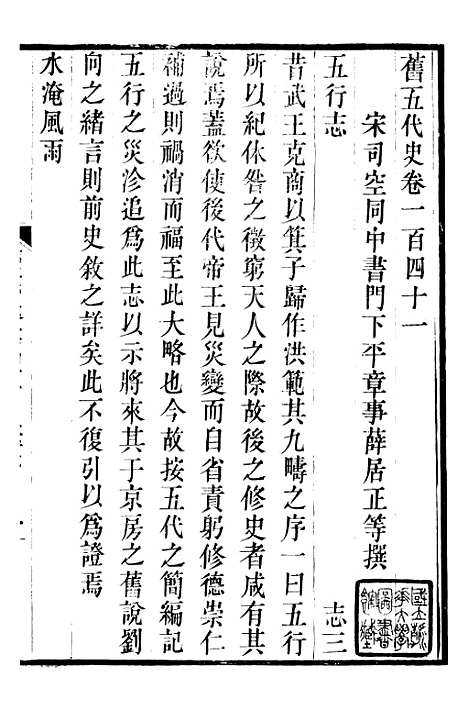 舊五代史卷一百四十一
宋司空同中書門下平章事薛居正等撰
五行志　志三
昔武王克商以箕子歸作洪範其九疇之序一曰五行
所以紀休咎之徵窮天人之際故後之修史者咸有其
說焉蓋欲使後代帝王見災變而自省責躬修德崇仁
補過則禍消而福至此大略也今故按五代之簡編記
五行之災沴追爲此志以示將來其于京房之舊說劉
向之緒言則前史敘之詳矣此不復引以爲證焉
水淹風雨